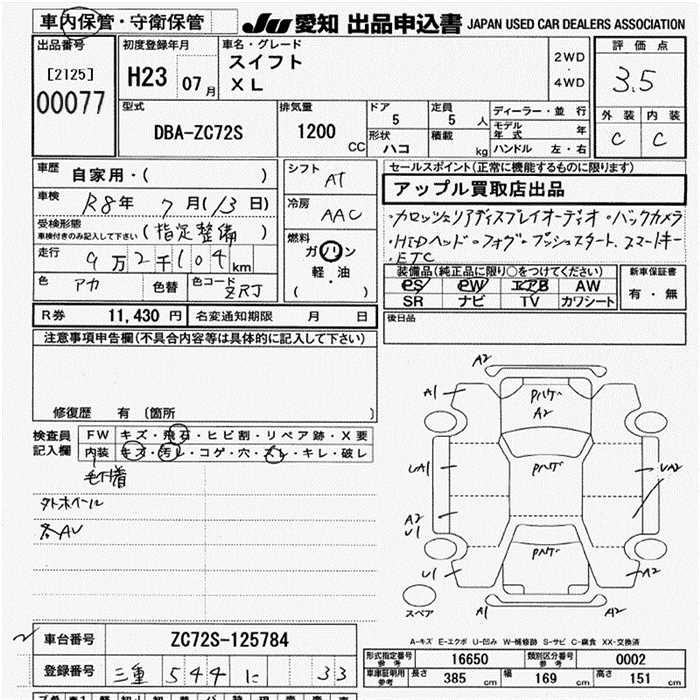 車内保管・守衛保管
JU 愛知 出品申込書 JAPAN USED CAR DEALERS ASSOCIATION
出品番号
[2125]
00077
初度登録年月
H23 07月
車名・グレード
スイフト
XL
2WD
・
4WD
評価点
3.5
外装 内装
C C
型式
DBA-ZC72S
排気量
1200 CC
ドア
5
定員
5 人
形状
ハコ
積載
kg
ディーラー・並行
モデル年式 年
ハンドル 左・右
車歴
自家用・( )
車検
R8年 7月(13日)
受検形態
車検付きのみ記入して下さい
(指定整備)
走行
9万2千104km
色
アカ
色替
色コード
ZRJ
シフト
AT
冷房
AAC
燃料
ガソリン
軽・油
( )
セールスポイント(正常に機能するものに限ります)
アップル買取店出品
・カロッツェリアディスプレイオーディオ・バックカメラ
・HIDヘッド・フォグ・プッシュスタート、スマートキー
・ETC
装備品(純正品に限り○をつけてください)
PS PW エアB AW
SR ナビ TV カワシート
新車保証書
有・無
R券 11,430円 名変通知期限 月 日
後日品
注意事項申告欄(不具合内容等は具体的に記入して下さい)
修復歴 有 〔箇所 〕
検査員
記入欄
FW キズ・飛石・ヒビ割・リペア跡・X要
内装 キズ・汚レ・コゲ・穴・スレ・キレ・破レ
毛付着
外ホイール
各AU
A2
A1
Pハゲ
A2
UA1
Pハゲ
UA2
A2
U1
Pハゲ
U1
A2
スペア
A1
A2
A-キズ E-エクボ U-凹み W-補修跡 S-サビ C-腐食 XX-交換済
車台番号 ZC72S-125784
登録番号 三重 544 に 33
形式指定番号 参考 16650 類別区分番号 参考 0002
車庫証明用 参考 長さ 385 cm 幅 169 cm 高さ 151 cm